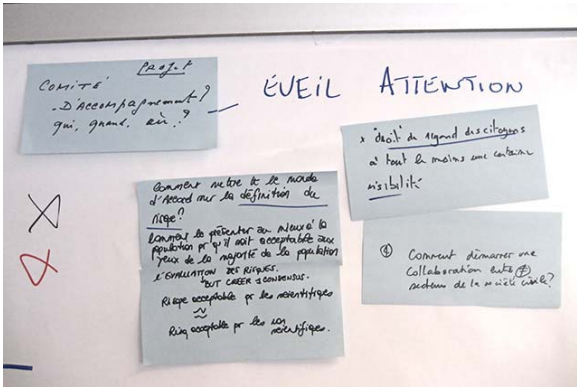 PROJET
COMITÉ
- D'ACCOMPAGNEMENT?
qui, quand, où?
ÉVEIL ATTENTION
x "droit" de regard des citoyens
à tout le moins une certaine
visibilité
Comment mettre tt le monde
d'Accord sur la définition du
risque?
Comment le présenter au mieux à la
population pr qu'il soit acceptable aux
yeux de la majorité de la population
L'ÉVALUATION DES RISQUES.
BUT CRÉER 1 CONSENSUS.
Risque acceptable pr les scientifiques
≈
Risq acceptable pr les non
scientifiques.
① Comment démarrer une
collaboration entre ≠
secteurs de la société civile?